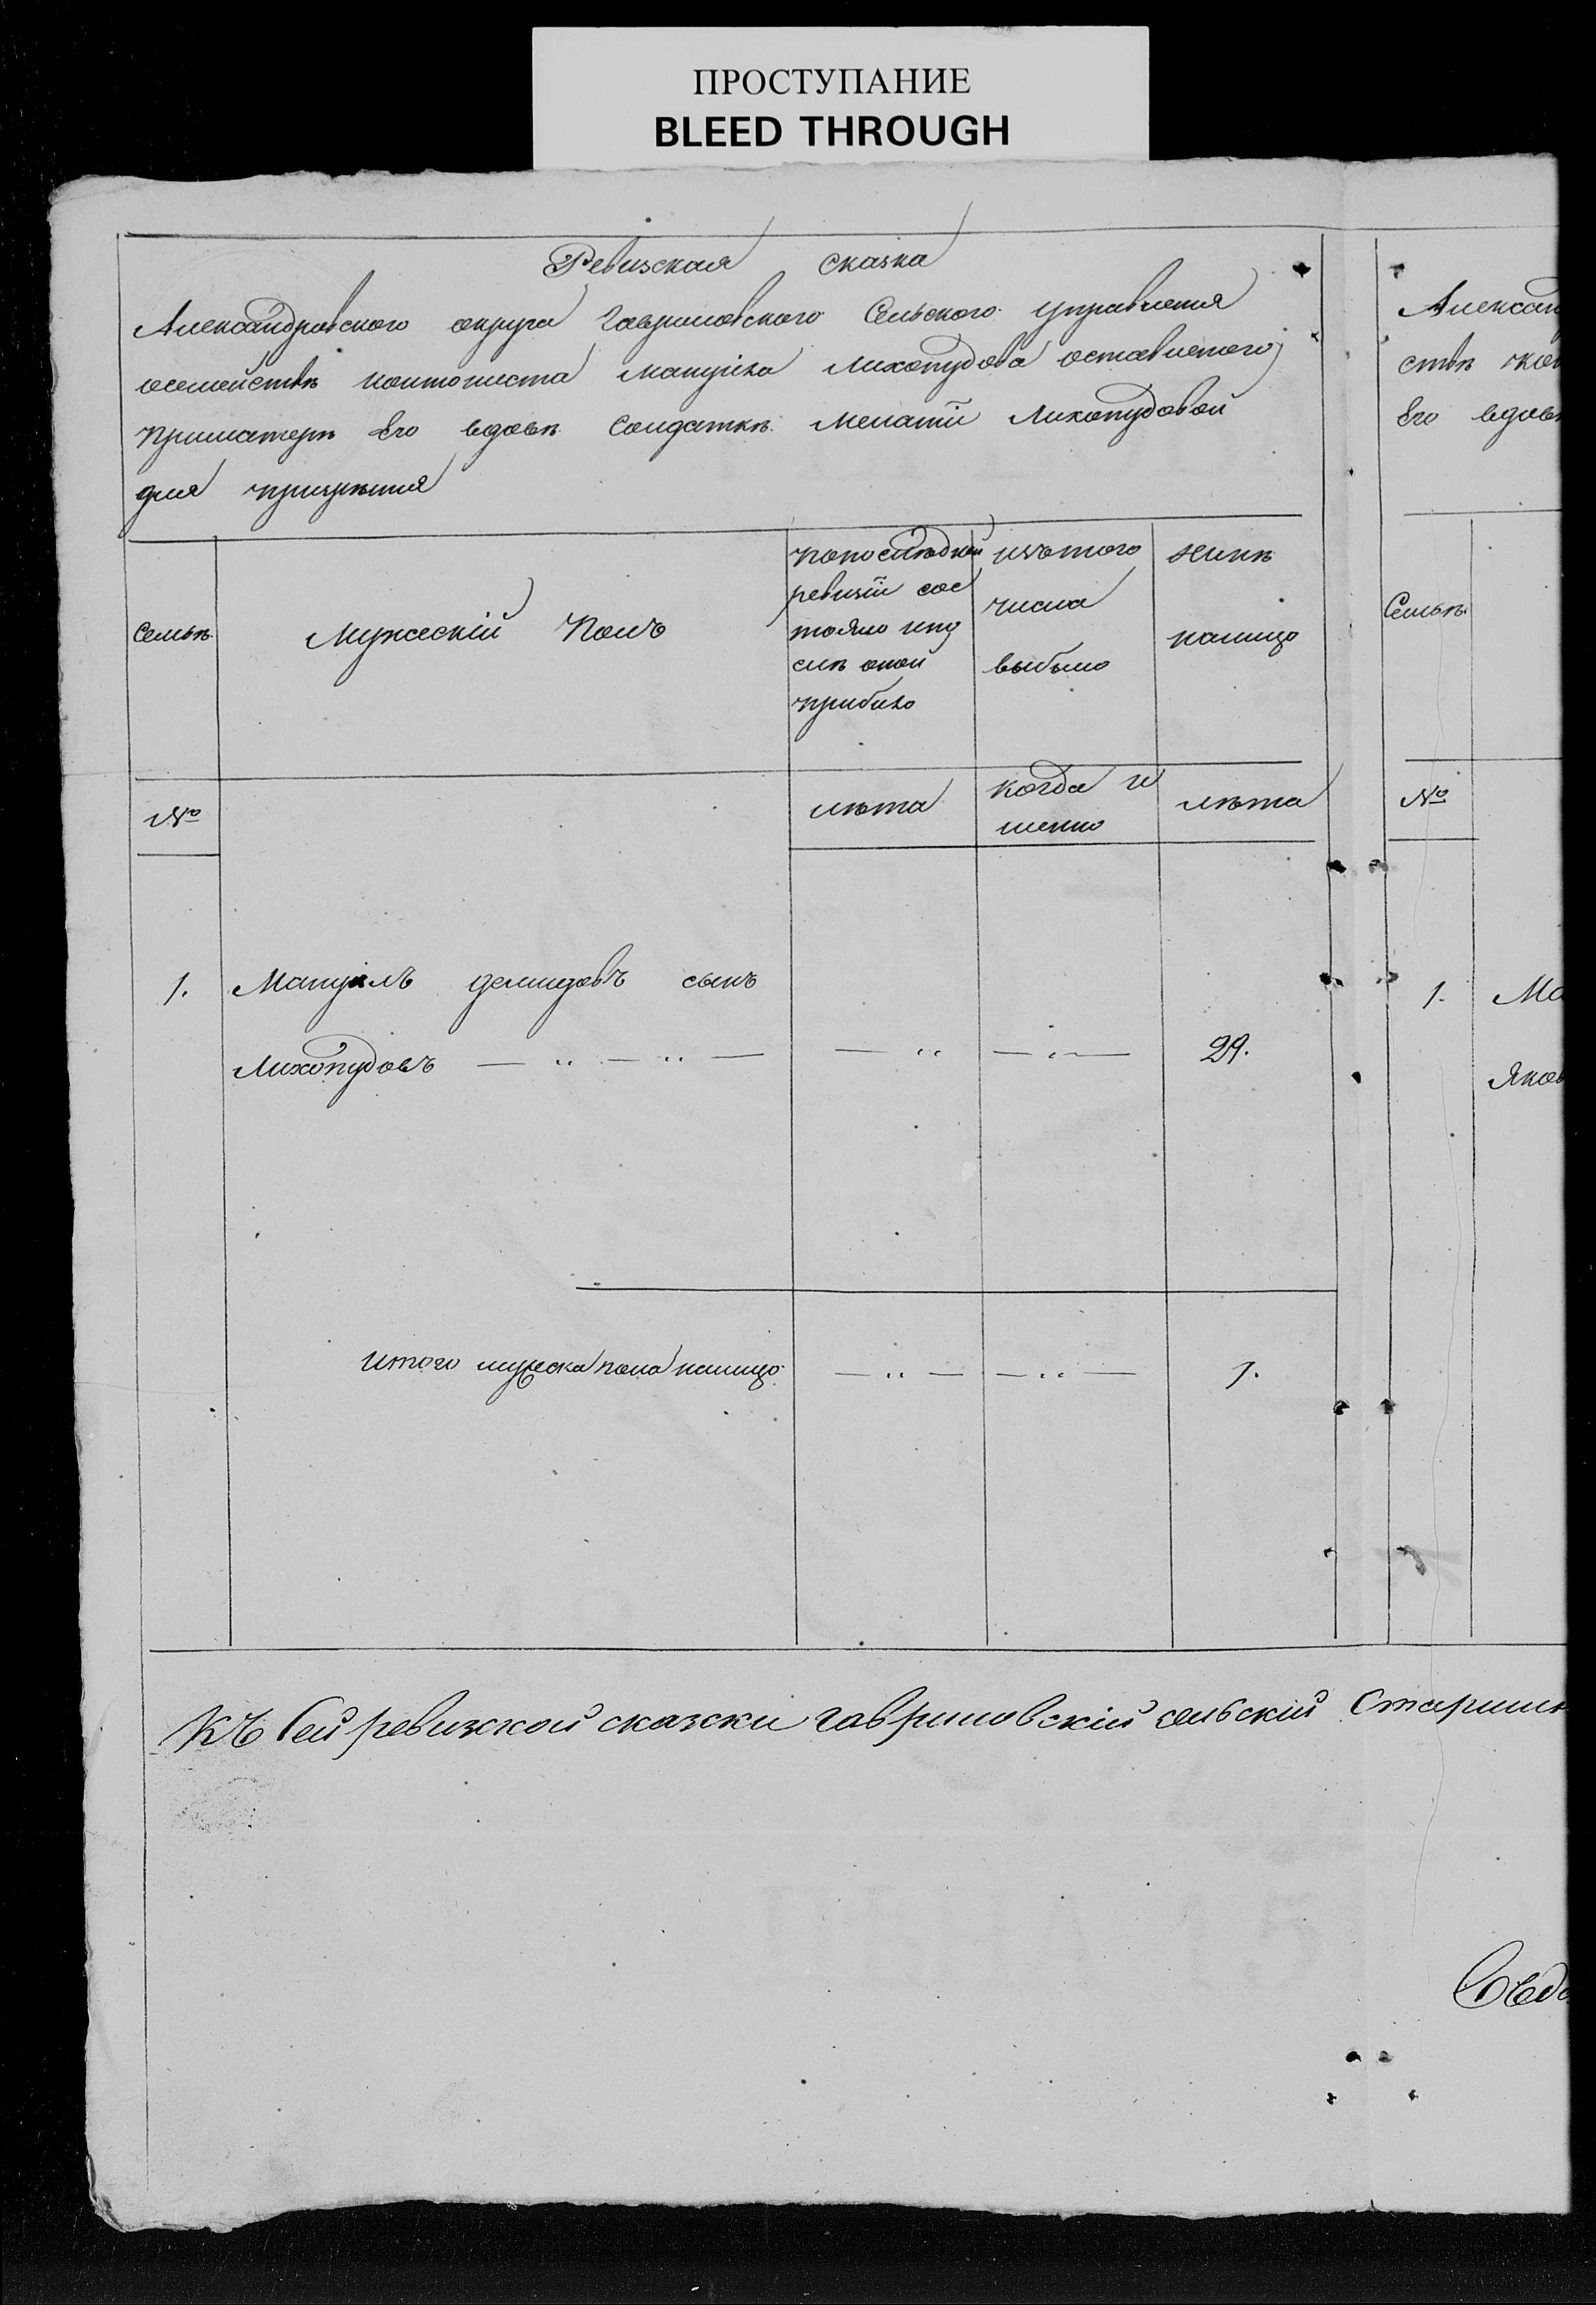 ПРОСТУПАНИЕ
BLEED THROUGH
Ревизская сказка
Александровского округа Гавриловского Сельского Управления
осемействѣ контониста Мануила Лихопудова оставленого
приматери Его вдовѣ Солдаткѣ Мелатіи Лихопудовой
для призрѣния
Семьѣ
Мужескій Полъ
попоследней
ревизіи сос
тояло ипо
слѣ оной
прибыло
изътого
числа
выбыло
нинѣ
налицо
№
лѣта
когда и
менно
лѣта
1. Мануилъ демидовъ сынъ
Лихопудовъ — „ — „ — — „ — „ — 29.
итого мужеска пола налицо — „ — — „ — 1.
Къ сей ревизской сказки гавриловскій сельский Старшин
Алексан
ствѣ кон
Его вдов
Семьѣ
№
1. Ма
Яков